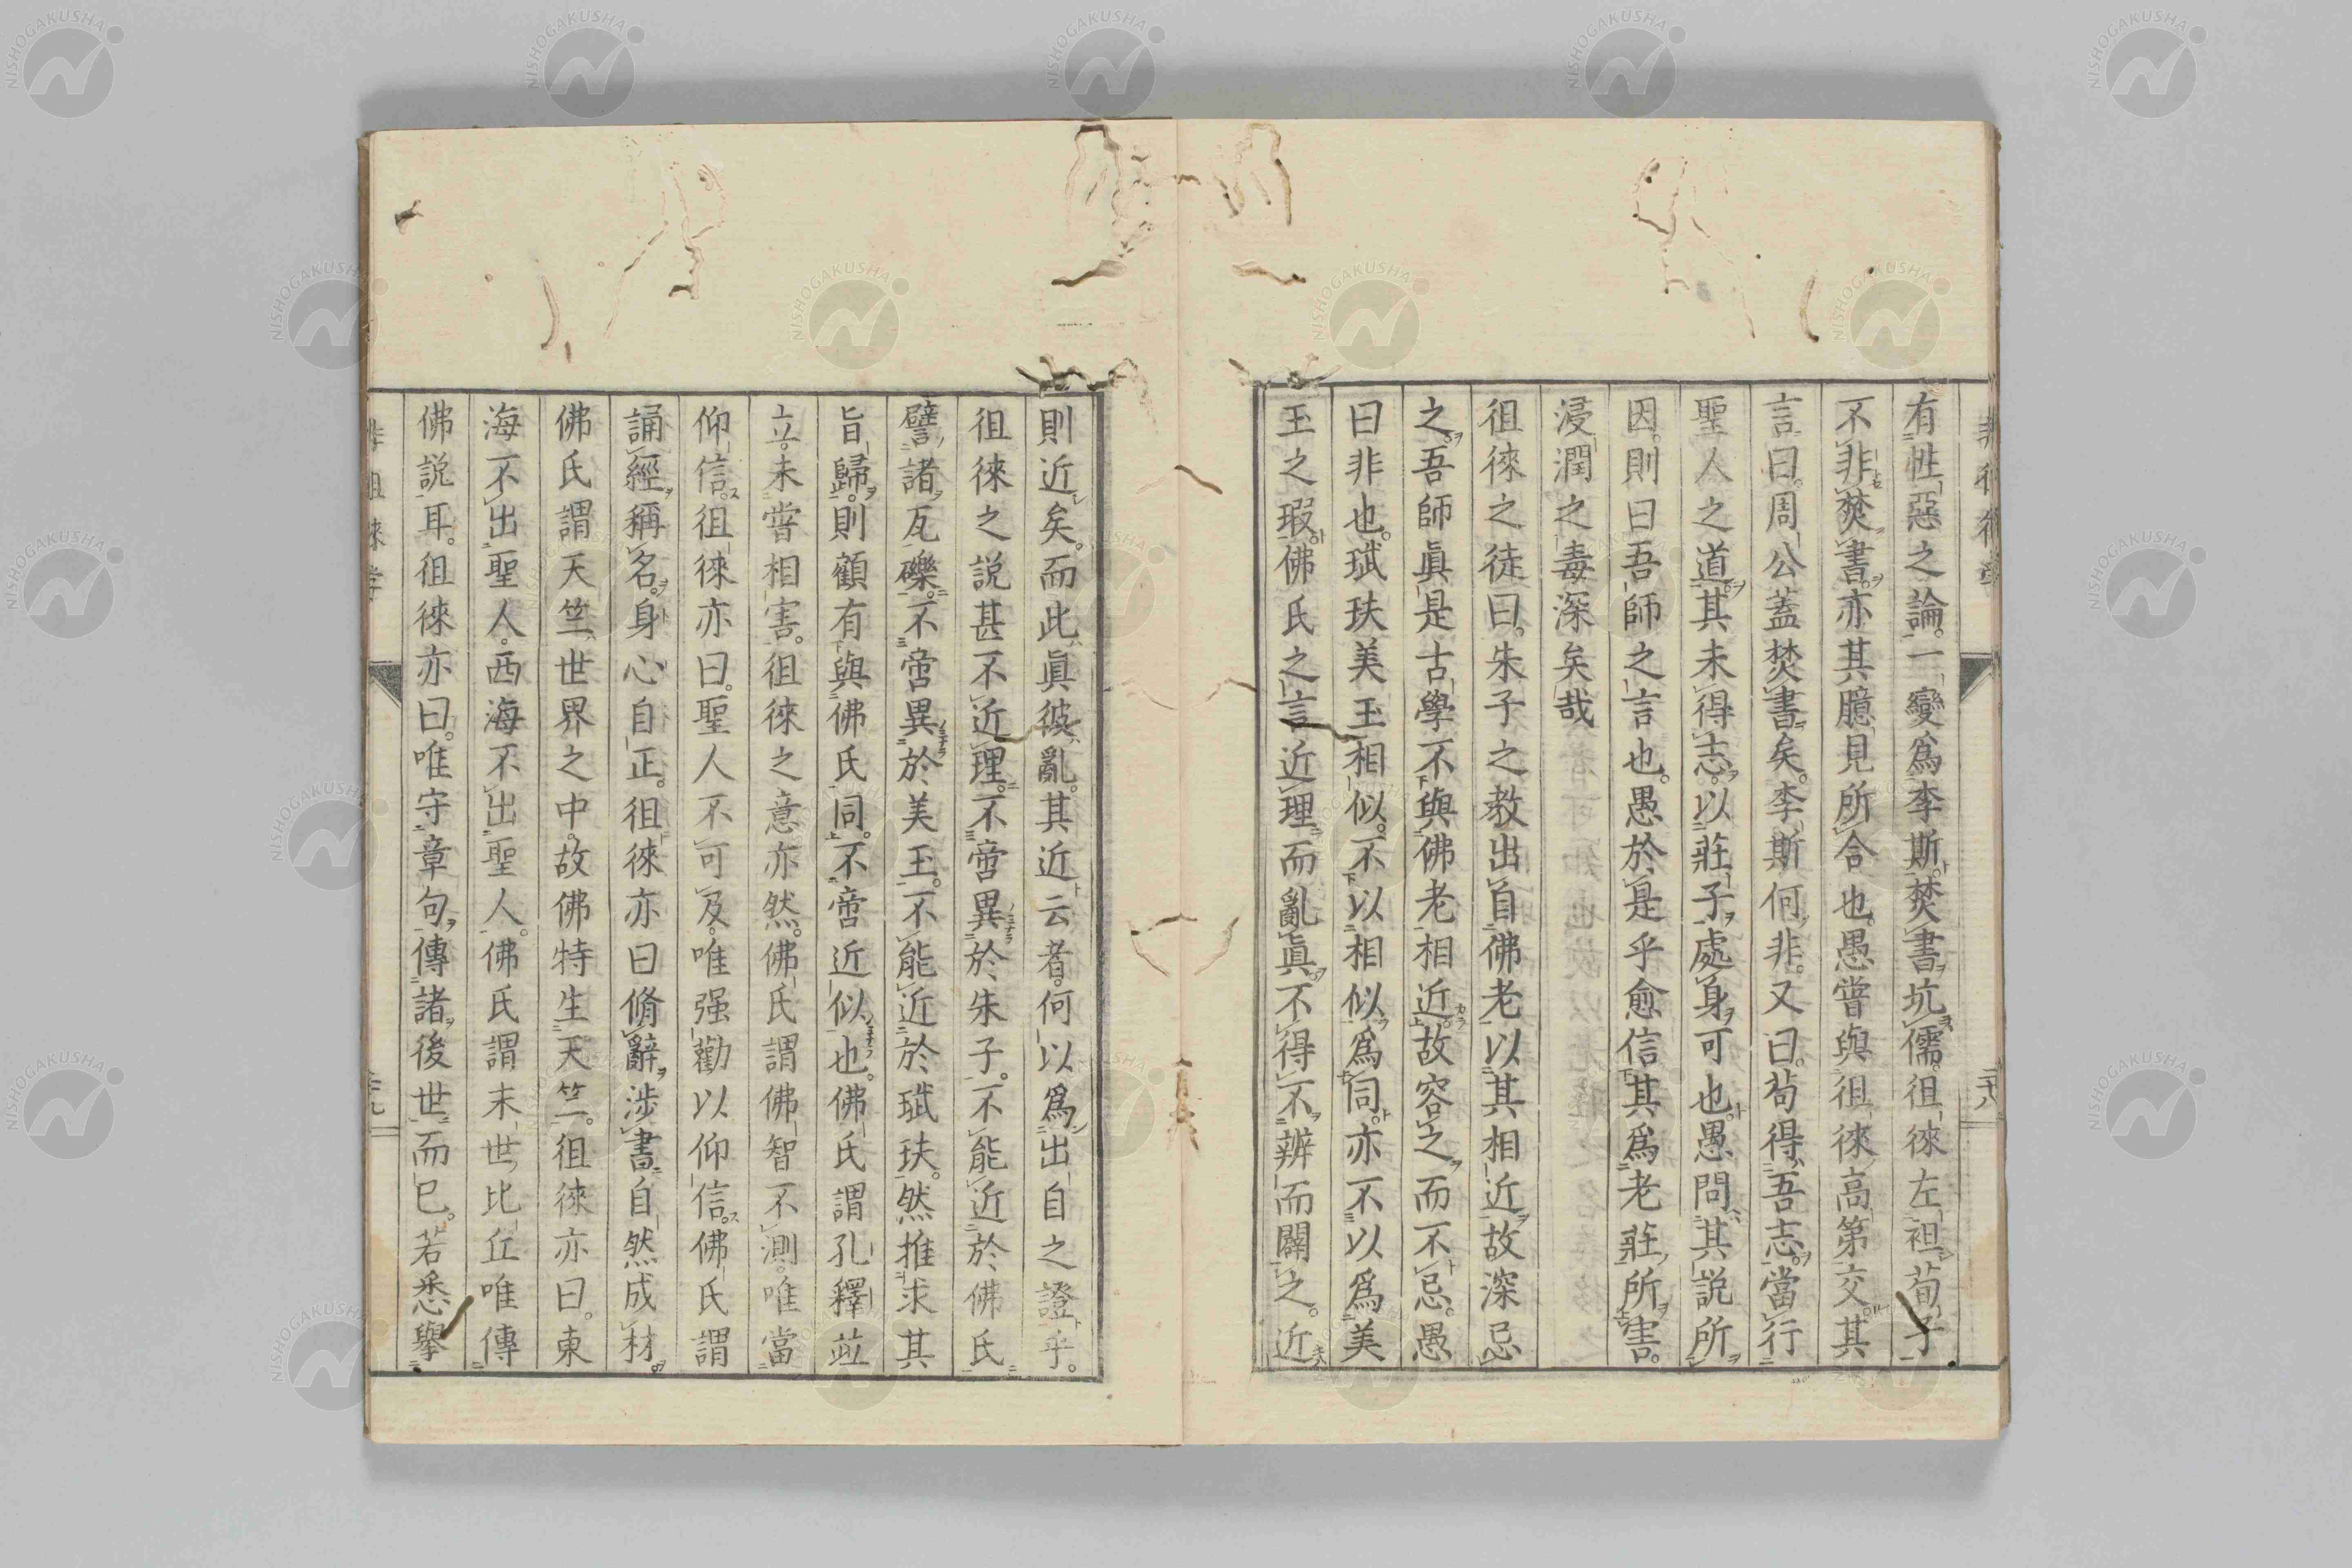 有性惡之論。一變爲李斯。焚書坑儒。徂徠左袒荀子
不非焚書。亦其臆見所合也。愚嘗與徂徠高第交其
言曰。周公蓋焚書矣。李斯何非。又曰。苟得吾志。當行
聖人之道。其未得志。以莊子處身可也。愚問其説所
因。則曰吾師之言也。愚於是乎愈信其爲老莊所害。
浸潤之毒深矣哉
徂徠之徒曰。朱子之教出自佛老以其相近故深忌
之。吾師眞是古學不與佛老相近。故容之而不忌。愚
曰非也。珷玞美玉相似。不以相似爲同。亦不以爲美
玉之瑕。佛氏之言近理而亂眞。不得不辨而闢之。近
則近矣。而此眞彼亂。其近云者。何以爲出自之證乎。
徂徠之説甚不近理。不啻異於朱子。不能近於佛氏
譬諸瓦礫。不啻異於美玉。不能近於珷玞。然推求其
旨歸。則顧有與佛氏同。不啻近似也。佛氏謂孔釋竝
立。未嘗相害。徂徠之意亦然。佛氏謂佛智不測。唯當
仰信。徂徠亦曰。聖人不可及。唯强勸以仰信。佛氏謂
誦經稱名。身心自正。徂徠亦曰脩辭涉書自然成材。
佛氏謂天竺世界之中。故佛特生天竺。徂徠亦曰。東
海不出聖人。西海不出聖人。佛氏謂末世比丘唯傳
佛説耳。徂徠亦曰。唯守章句。傳諸後世而已。若悉擧